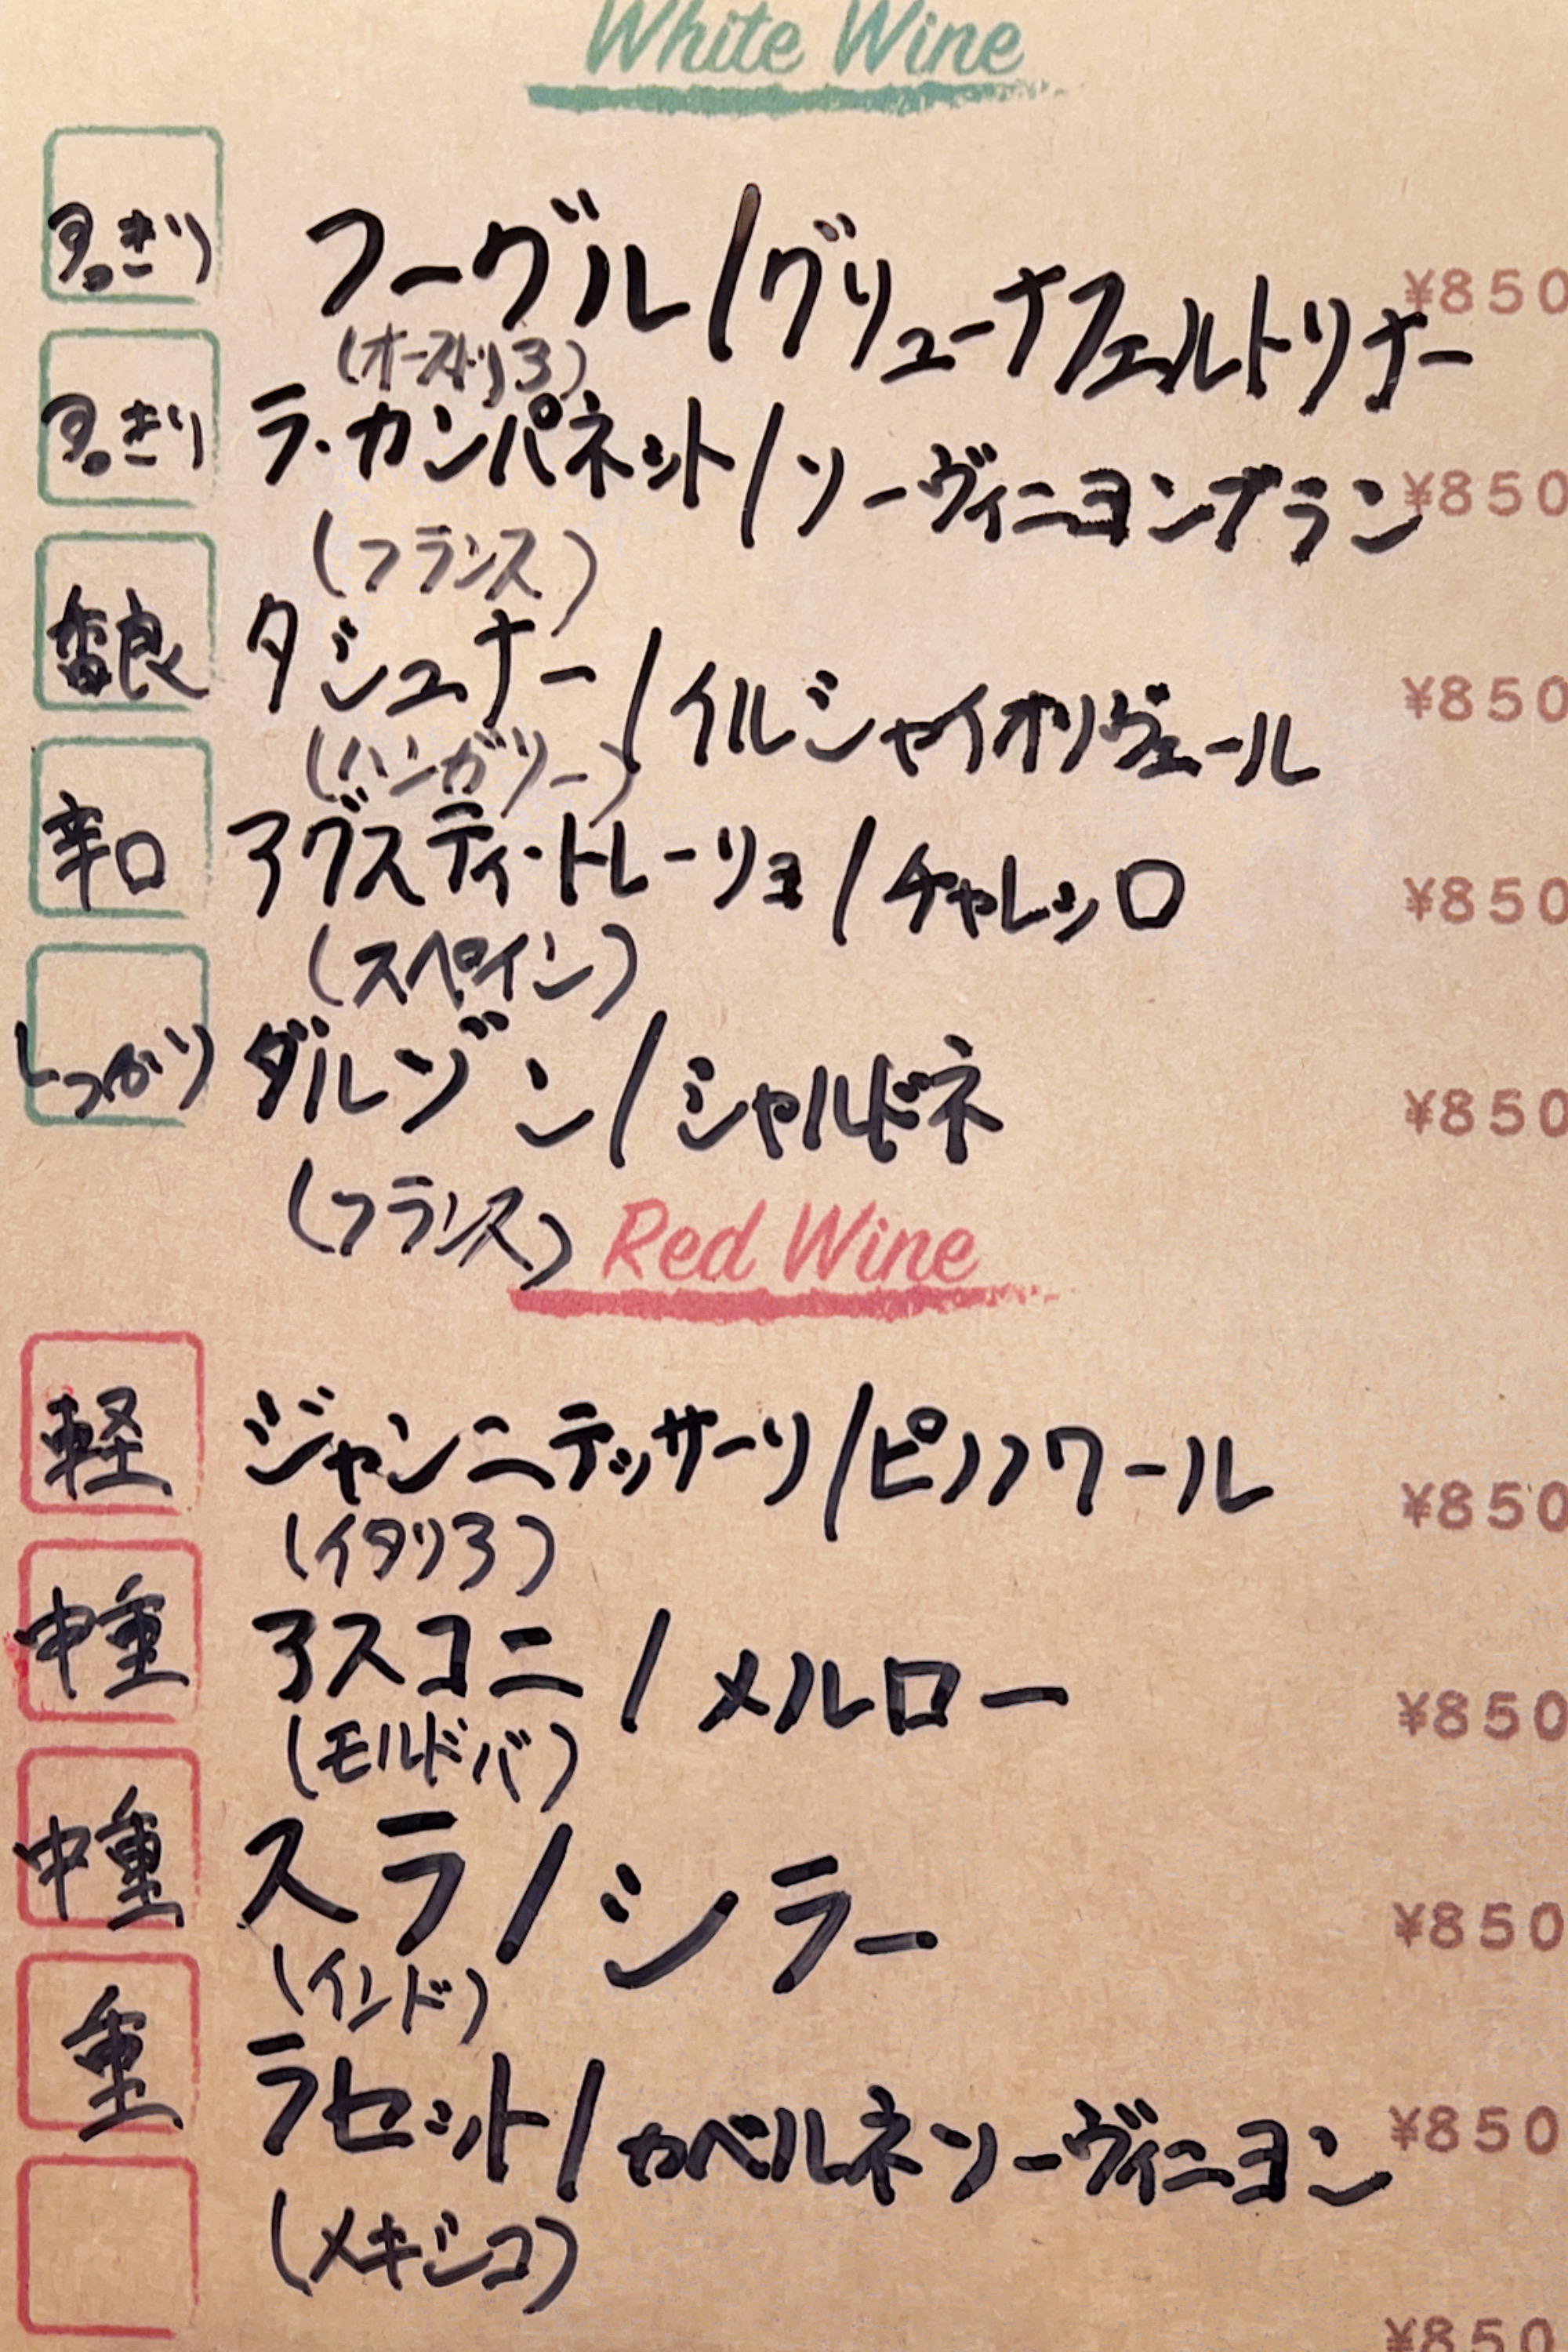 White Wine
すっきり フーグル/グリューナフェルトリナー ¥850
(オーストリア)
すっきり ラ・カンパネット/ソーヴィニヨンブラン ¥850
(フランス)
タジュナー/イルシャイオリヴェール ¥850
(ハンガリー)
辛口 アグスティ・トレーリョ/チャレッロ ¥850
(スペイン)
しっかり ダルゾン/シャルドネ ¥850
(フランス)
Red Wine
軽 ジャンニテッサーリ/ピノノワール ¥850
(イタリア)
中重 アスコニ/メルロー ¥850
(モルドバ)
中重 スラ/シラー ¥850
(インド)
重 ラセット/カベルネソーヴィニヨン ¥850
(メキシコ)
¥850